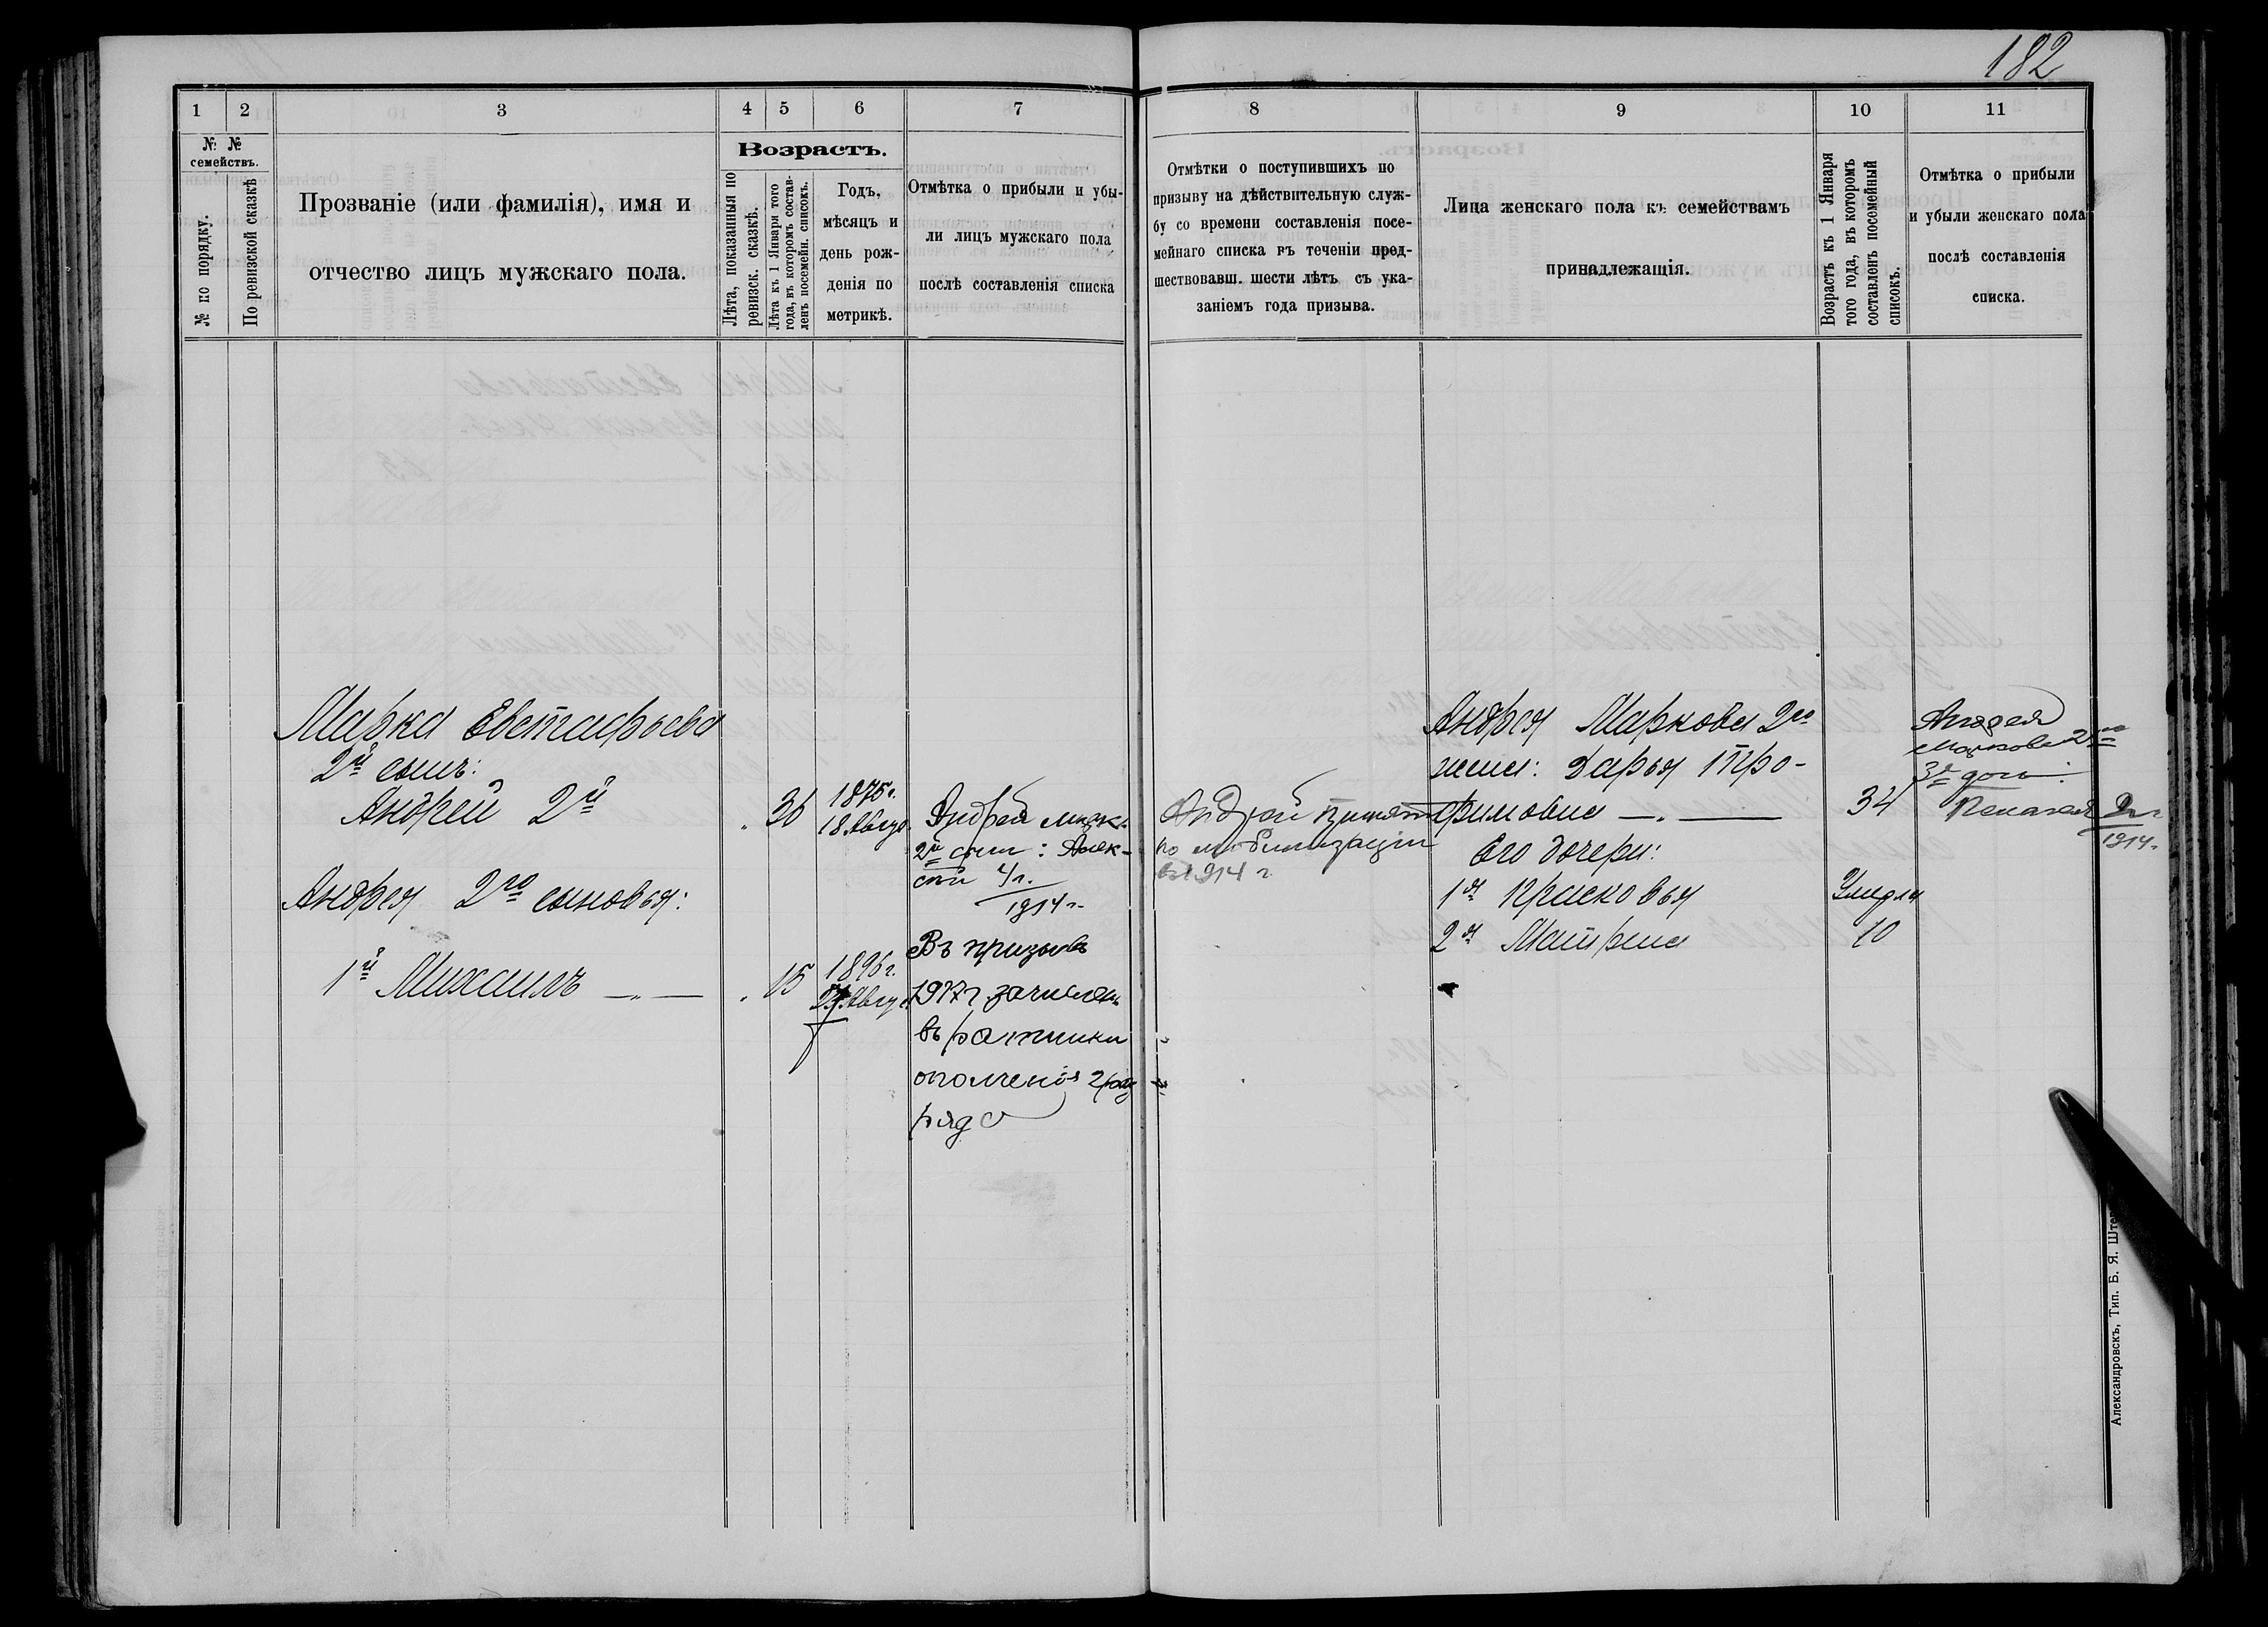 182
1 2 3 4 5 6 7
№ №
семействъ.
№ по порядку.
По ревизской сказкѣ
Прозваніе (или фамилія), имя и
отчество лицъ мужскаго пола.
Возрастъ.
Лѣта, показанныя по
ревизск. сказкѣ.
Лѣта къ 1 Января того
года, въ которомъ состав-
ленъ посемейн. списокъ.
Годъ,
мѣсяцъ и
день рож-
денія по
метрикѣ.
Отмѣтка о прибыли и убы-
ли лицъ мужскаго пола
послѣ составленія списка
Марка Евстафьева
2й сынъ:
Андрей 2й
36
1875 г.
18 Авгус.
Андрея Марк.
2й сын: Алек-
сѣй 4 л.
1914 г.
Андрея 2го сыновья:
1й Михаилъ
15
1896 г.
Авгус.
Въ призывъ
1917 г. зачислен
въ ратники
ополченія 2 раз
ряда
8 9 10 11
Отмѣтки о поступившихъ по
призыву на дѣйствительную служ-
бу со времени составленія посе-
мейнаго списка въ теченіи пред-
шествовавш. шести лѣтъ съ ука-
заніемъ года призыва.
Лица женскаго пола къ семействамъ
принадлежащія.
Возрастъ къ 1 Января
того года, въ которомъ
составленъ посемейный
списокъ.
Отмѣтка о прибыли
и убыли женскаго пола
послѣ составленія
списка.
Андрей принят
по мобилизаціи
въ 1914 г
Андрея Маркова 2го
жена: Дарья Тро-
фимовна
34
Его дочери:
1я Прасковья
Умерла
2я Матрена
10
Андрея
Маркова 2го
3я доч:
Пелагея 2 г
1914 г.
Александровскъ, Тип. Б. Я. Штер